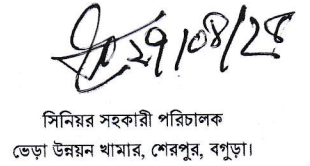 ২৭/০৪/২৪
সিনিয়র সহকারী পরিচালক
ভেড়া উন্নয়ন খামার, শেরপুর, বগুড়া।